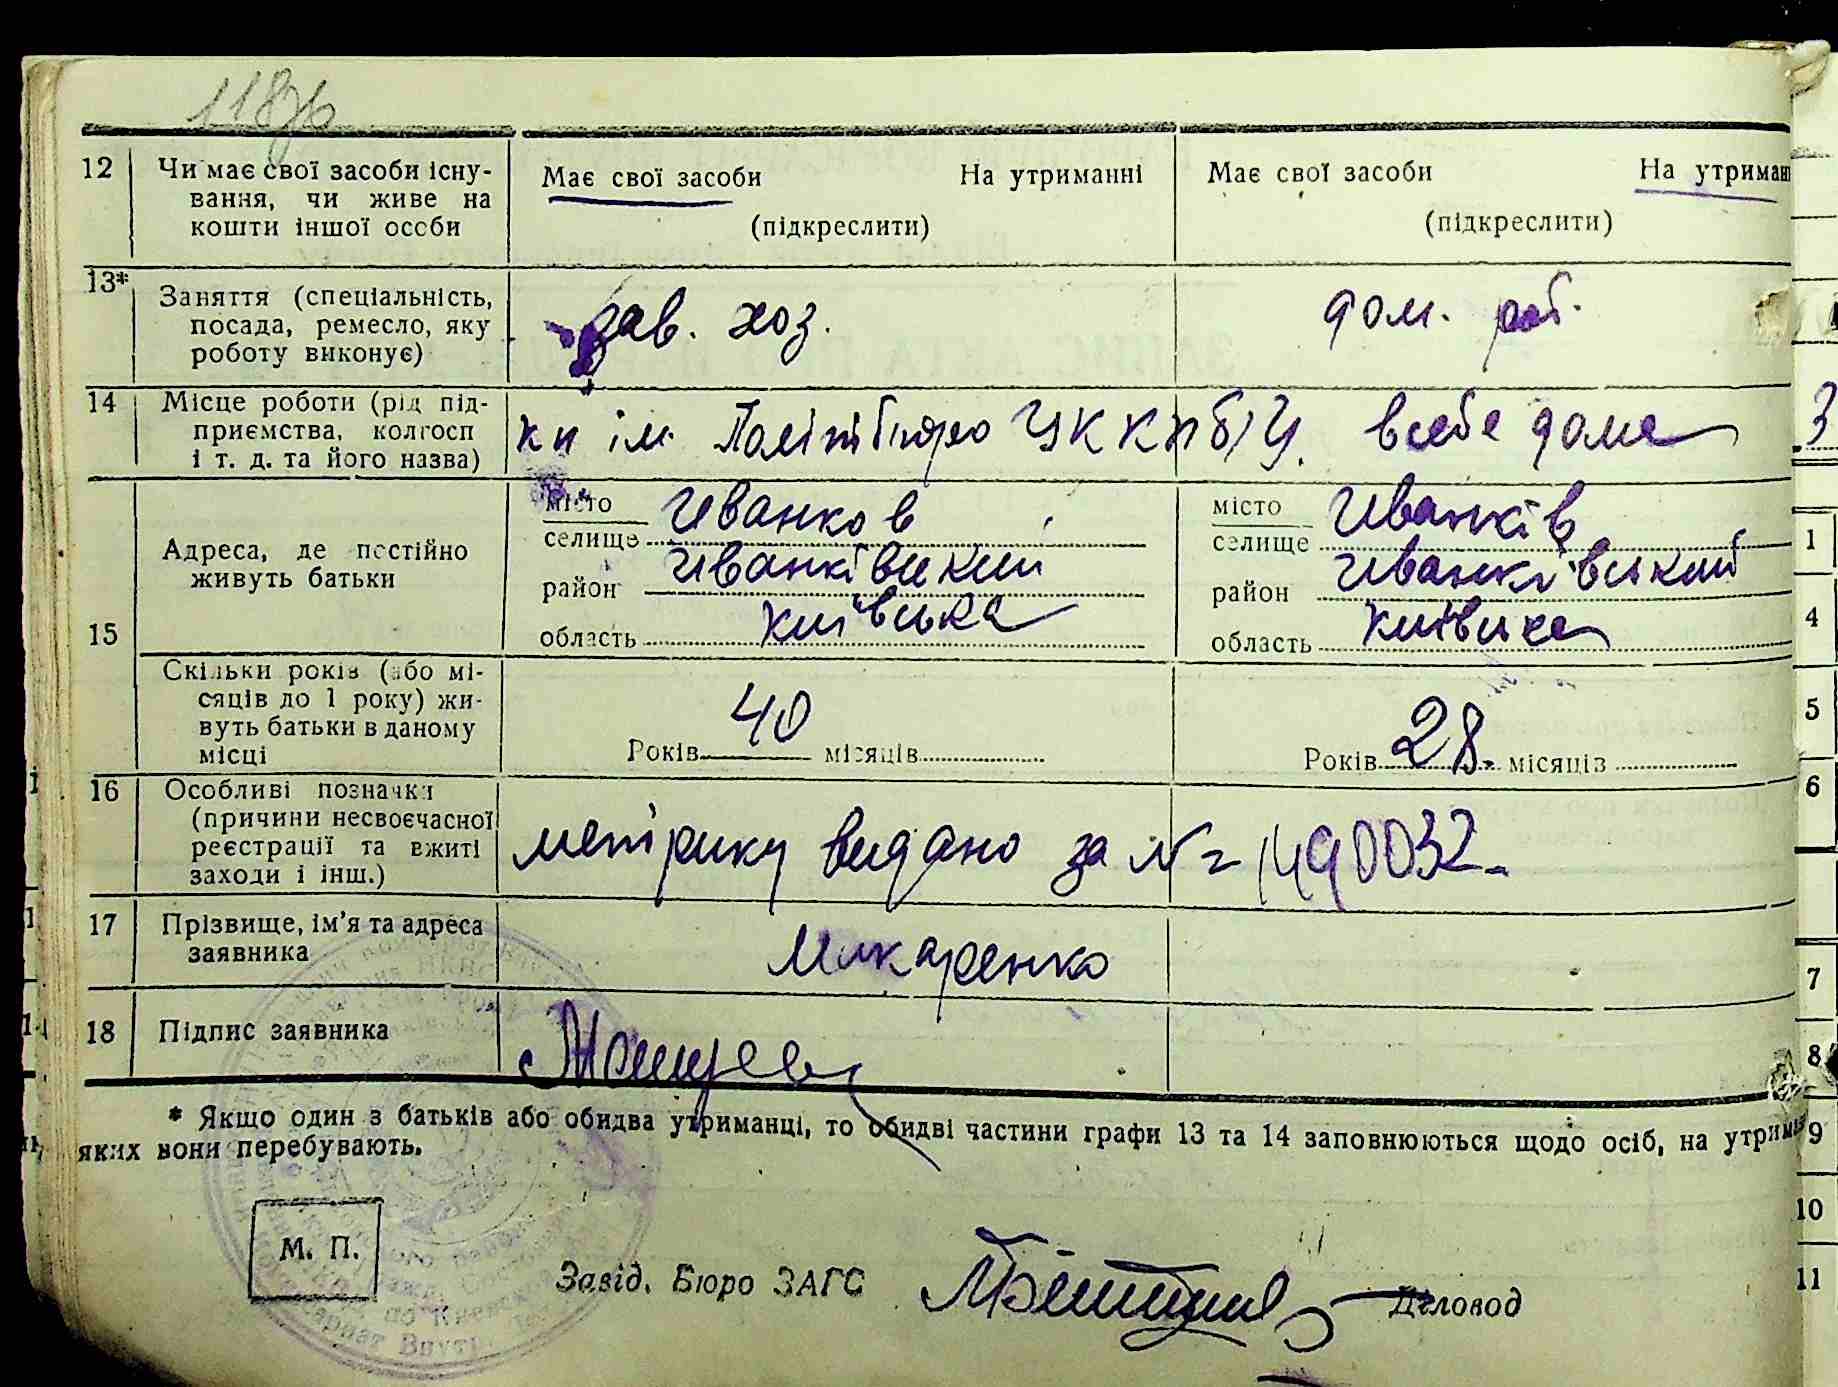 118
12 Чи має свої засоби існу-
вання, чи живе на
кошти іншої особи
Має свої засоби На утриманні
(підкреслити)
Має свої засоби На утриман
(підкреслити)
13* Заняття (спеціальність,
посада, ремесло, яку
роботу виконує)
зав. хоз.
дом. раб.
14 Місце роботи (рід під-
приємства, колгосп
і т. д. та його назва)
ім. Політбюро ЦК КП(б)У.
в себе дома
15 Адреса, де постійно
живуть батьки
місто Иванков
селище
район Иванківський
область Київська
місто Иванків
селище
район Иванківський
область Київська
Скільки років (або мі-
сяців до 1 року) жи-
вуть батьки в даному
місці
Років 40 місяців
Років 28 місяців
16 Особливі позначки
(причини несвоєчасної
реєстрації та вжиті
заходи і інш.)
метрику видано за № 1490032
17 Прізвище, ім'я та адреса
заявника
Макаренко
18 Підпис заявника
* Якщо один з батьків або обидва утриманці, то обидві частини графи 13 та 14 заповнюються щодо осіб, на утрим
яких вони перебувають.
М. П.
Завід. Бюро ЗАГС Діловод
1
4
5
6
7
8
9
10
11